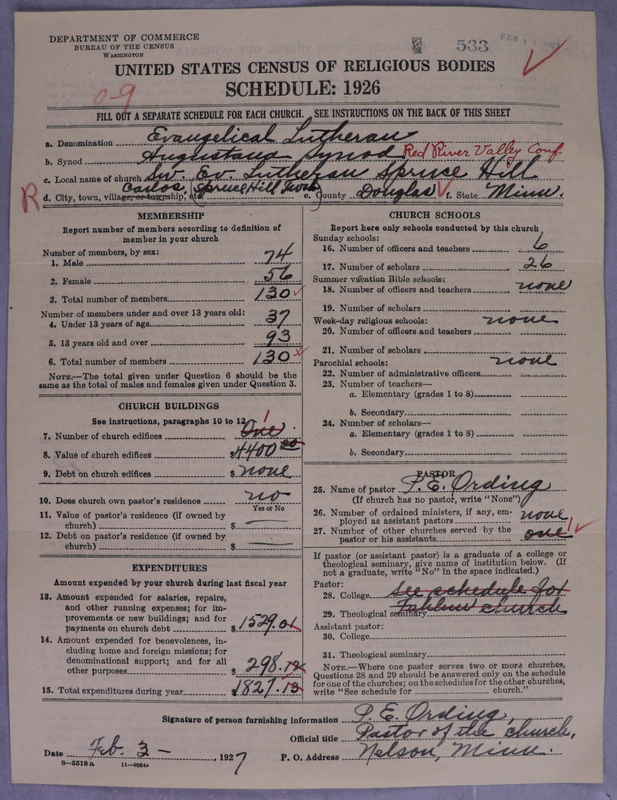 DEPARTMENT OF COMMERCE
BUREAU OF THE CENSUS
WASHINGTON
533
FEB 11 192
UNITED STATES CENSUS OF RELIGIOUS BODIES
SCHEDULE: 1926
0-9
FILL OUT A SEPARATE SCHEDULE FOR EACH CHURCH. SEE INSTRUCTIONS ON THE BACK OF THIS SHEET
a. Denomination Evangelical Lutheran
b. Synod Augustana Synod Red River Valley Conf.
c. Local name of church Sw. Ev. Lutheran Spruce Hill
R d. City, town, village, or township, etc. Carlos, Spruce Hill e. County Douglas f. State Minn.
MEMBERSHIP
Report number of members according to definition of
member in your church
Number of members, by sex:
1. Male 74
2. Female 56
3. Total number of members 130
Number of members under and over 13 years old:
4. Under 13 years of age 37
5. 13 years old and over 93
6. Total number of members 130
NOTE.—The total given under Question 6 should be the
same as the total of males and females given under Question 3.
CHURCH BUILDINGS
See instructions, paragraphs 10 to 12
7. Number of church edifices One 1
8. Value of church edifices $4400 00
9. Debt on church edifices $ none
10. Does church own pastor's residence no
Yes or No
11. Value of pastor's residence (if owned by
church) $ —
12. Debt on pastor's residence (if owned by
church) $ —
EXPENDITURES
Amount expended by your church during last fiscal year
13. Amount expended for salaries, repairs,
and other running expenses; for im-
provements or new buildings; and for
payments on church debt $1529.01
14. Amount expended for benevolences, in-
cluding home and foreign missions; for
denominational support; and for all
other purposes $298.12
15. Total expenditures during year $1827.13
CHURCH SCHOOLS
Report here only schools conducted by this church
Sunday schools:
16. Number of officers and teachers 6
17. Number of scholars 26
Summer vacation Bible schools:
18. Number of officers and teachers none
19. Number of scholars
Week-day religious schools: none
20. Number of officers and teachers
21. Number of scholars
Parochial schools: none
22. Number of administrative officers
23. Number of teachers—
a. Elementary (grades 1 to 8)
b. Secondary
24. Number of scholars—
a. Elementary (grades 1 to 8)
b. Secondary
PASTOR
25. Name of pastor P. E. Ording
(If church has no pastor, write "None")
26. Number of ordained ministers, if any, em-
ployed as assistant pastors none
27. Number of other churches served by the
pastor or his assistants one 1
If pastor (or assistant pastor) is a graduate of a college or
theological seminary, give name of institution below. (If
not a graduate, write "No" in the space indicated.)
Pastor:
28. College see schedule for
29. Theological seminary Fahlun church
Assistant pastor:
30. College
31. Theological seminary
NOTE.—Where one pastor serves two or more churches,
Questions 28 and 29 should be answered only on the schedule
for one of the churches; on the schedules for the other churches,
write "See schedule for church."
Signature of person furnishing information P. E. Ording,
Official title Pastor of the church,
Date Feb. 3 — , 1927 P. O. Address Nelson, Minn.
8—5518a 11—9054